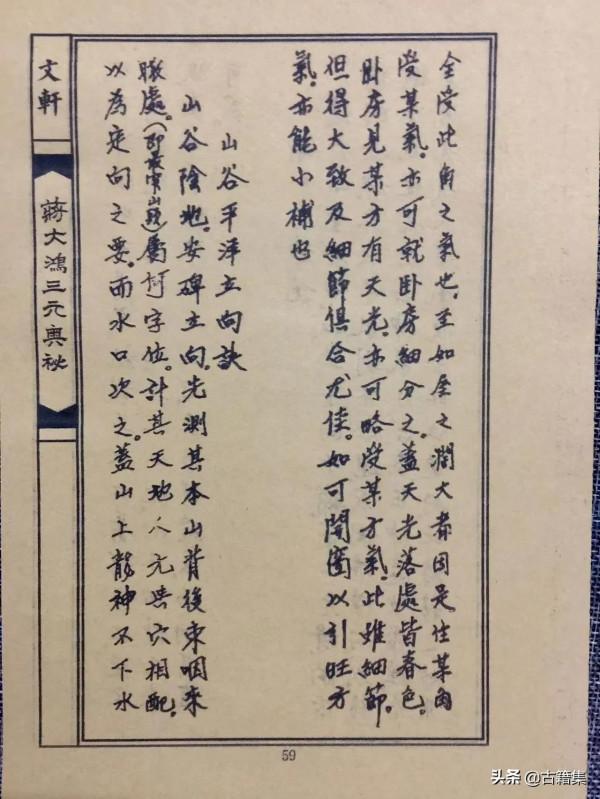 全受此角之氣也,至如屋之濶大者因是住某角
受某氣。亦可就卧房細分之。蓋天光落處皆春色。
卧房見某方有天光。亦可略受某方氣。此雖細節。
但得大致及細節俱合尤佳。如可開窗以引旺方
氣。亦能小補也
山谷平洋立向訣
山谷陰地。安碑立向。先測其本山背後束咽來
脈處。(即最窄山頸)屬何字位。計其天地人元與穴相配。
以為定向之要。而水口次之。蓋山上龍神不下水
文軒
蔣大鴻三元奧秘
59
头条 @古籍集